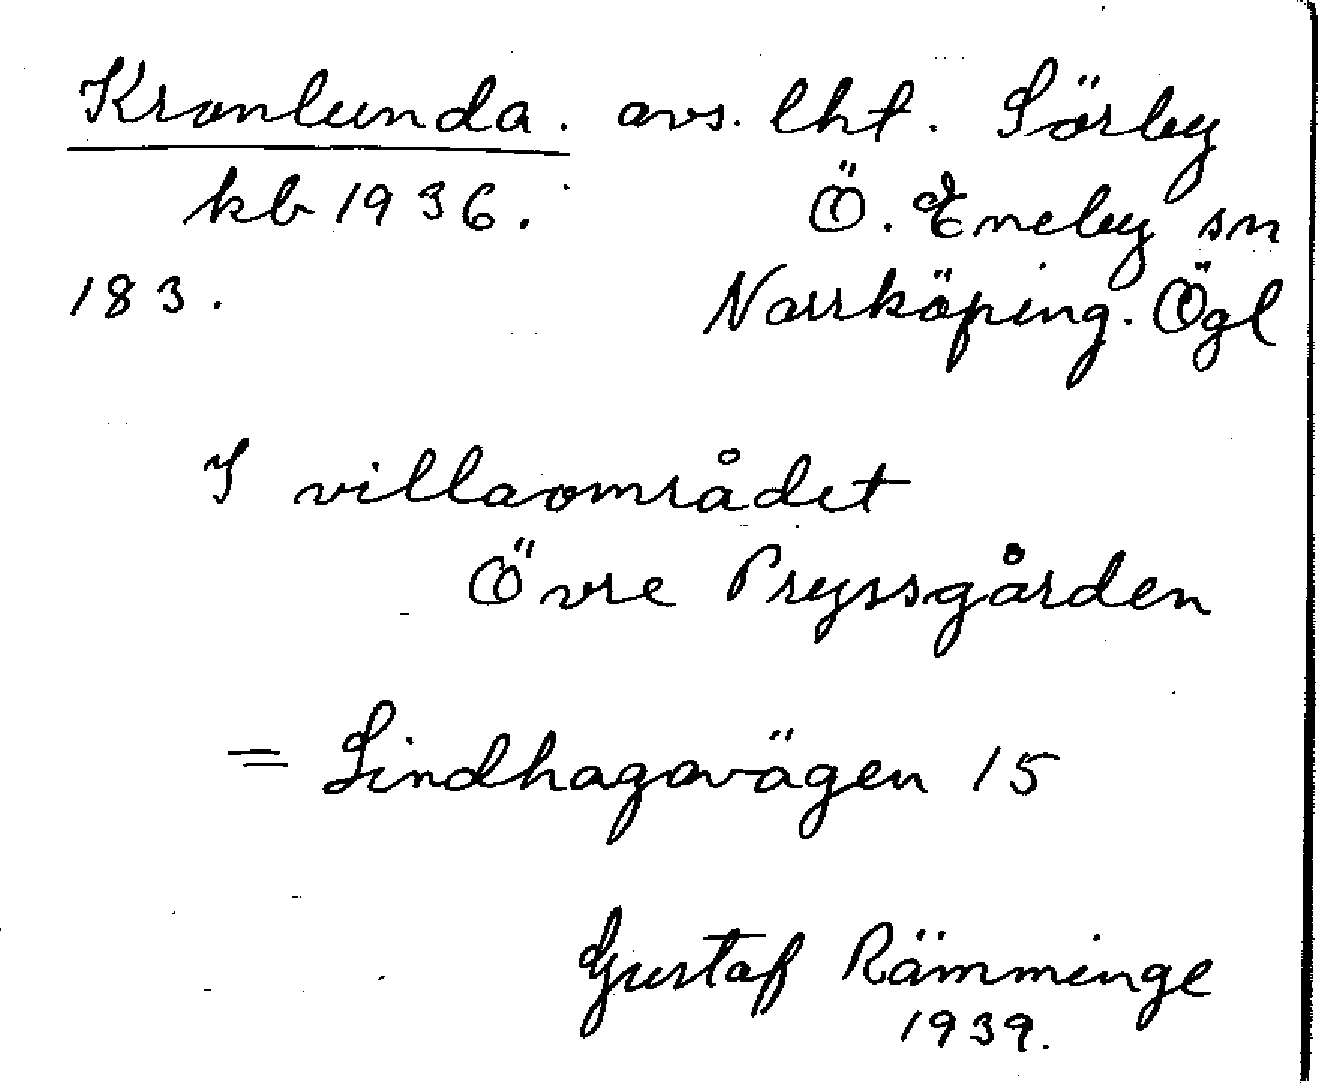 Kronlunda. avs. lht. Sörby
kb 1936. Ö. Eneby sn
183. Norrköping. Ögl
I villaområdet
Övre Pryssgården
= Lindhagavägen 15
Gustaf Rämminge
1939.